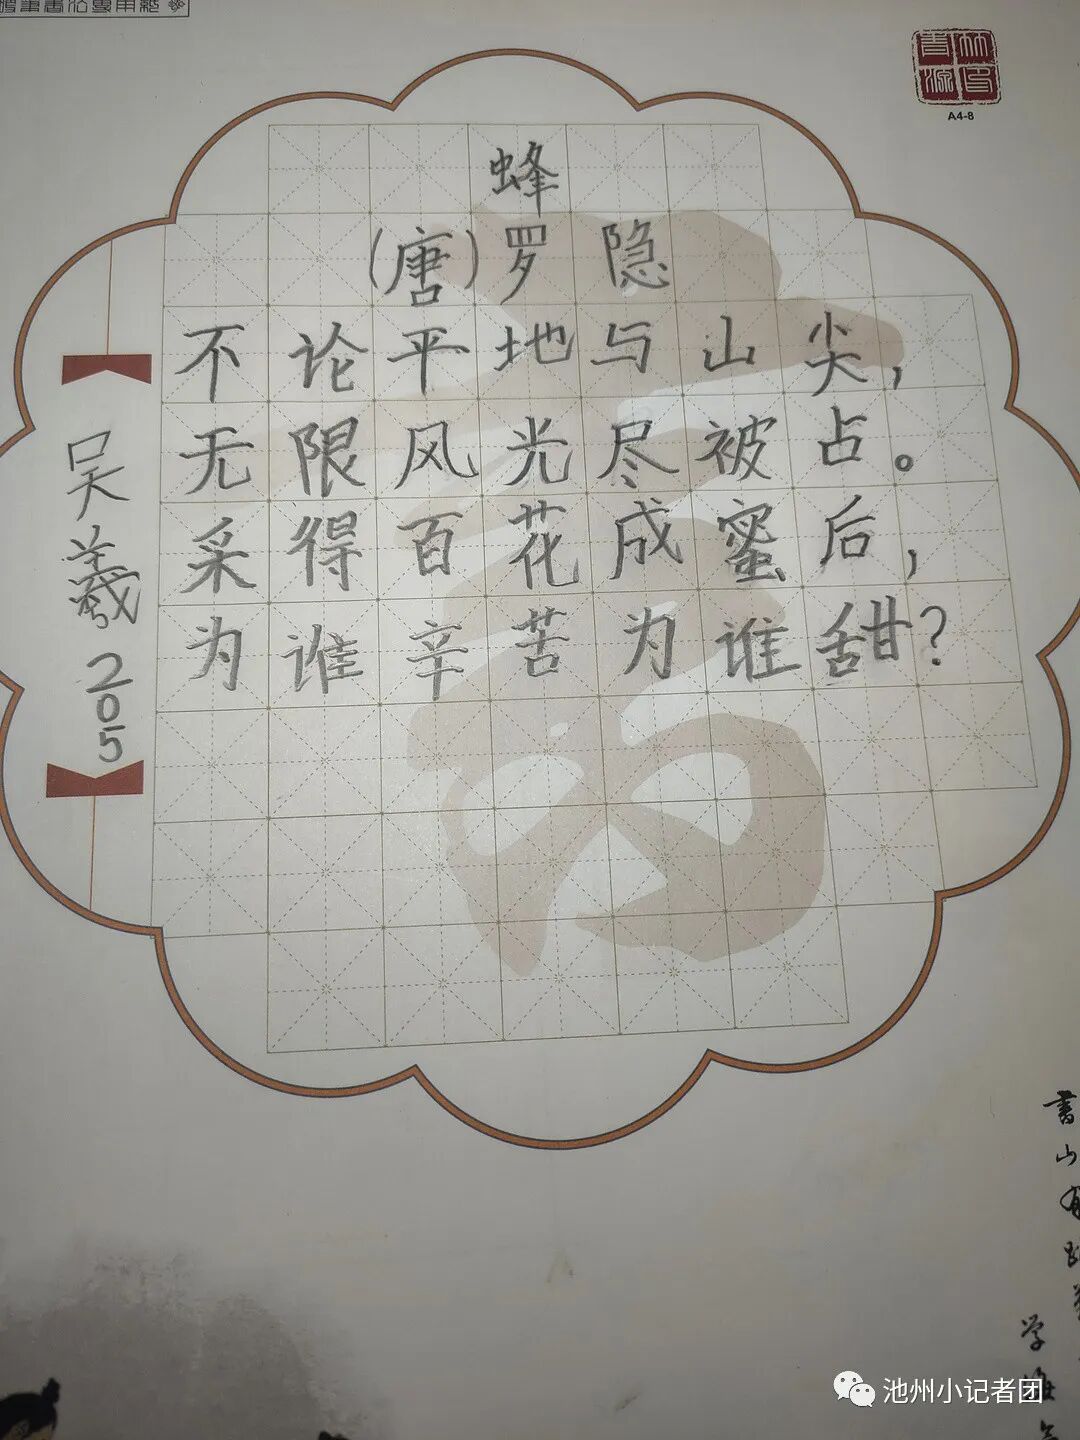 硬笔书法专用纸
A4-8
蜂
(唐)罗隐
不论平地与山尖，
无限风光尽被占。
采得百花成蜜后，
为谁辛苦为谁甜？
吴羲 205
書山有
学海
池州小记者团